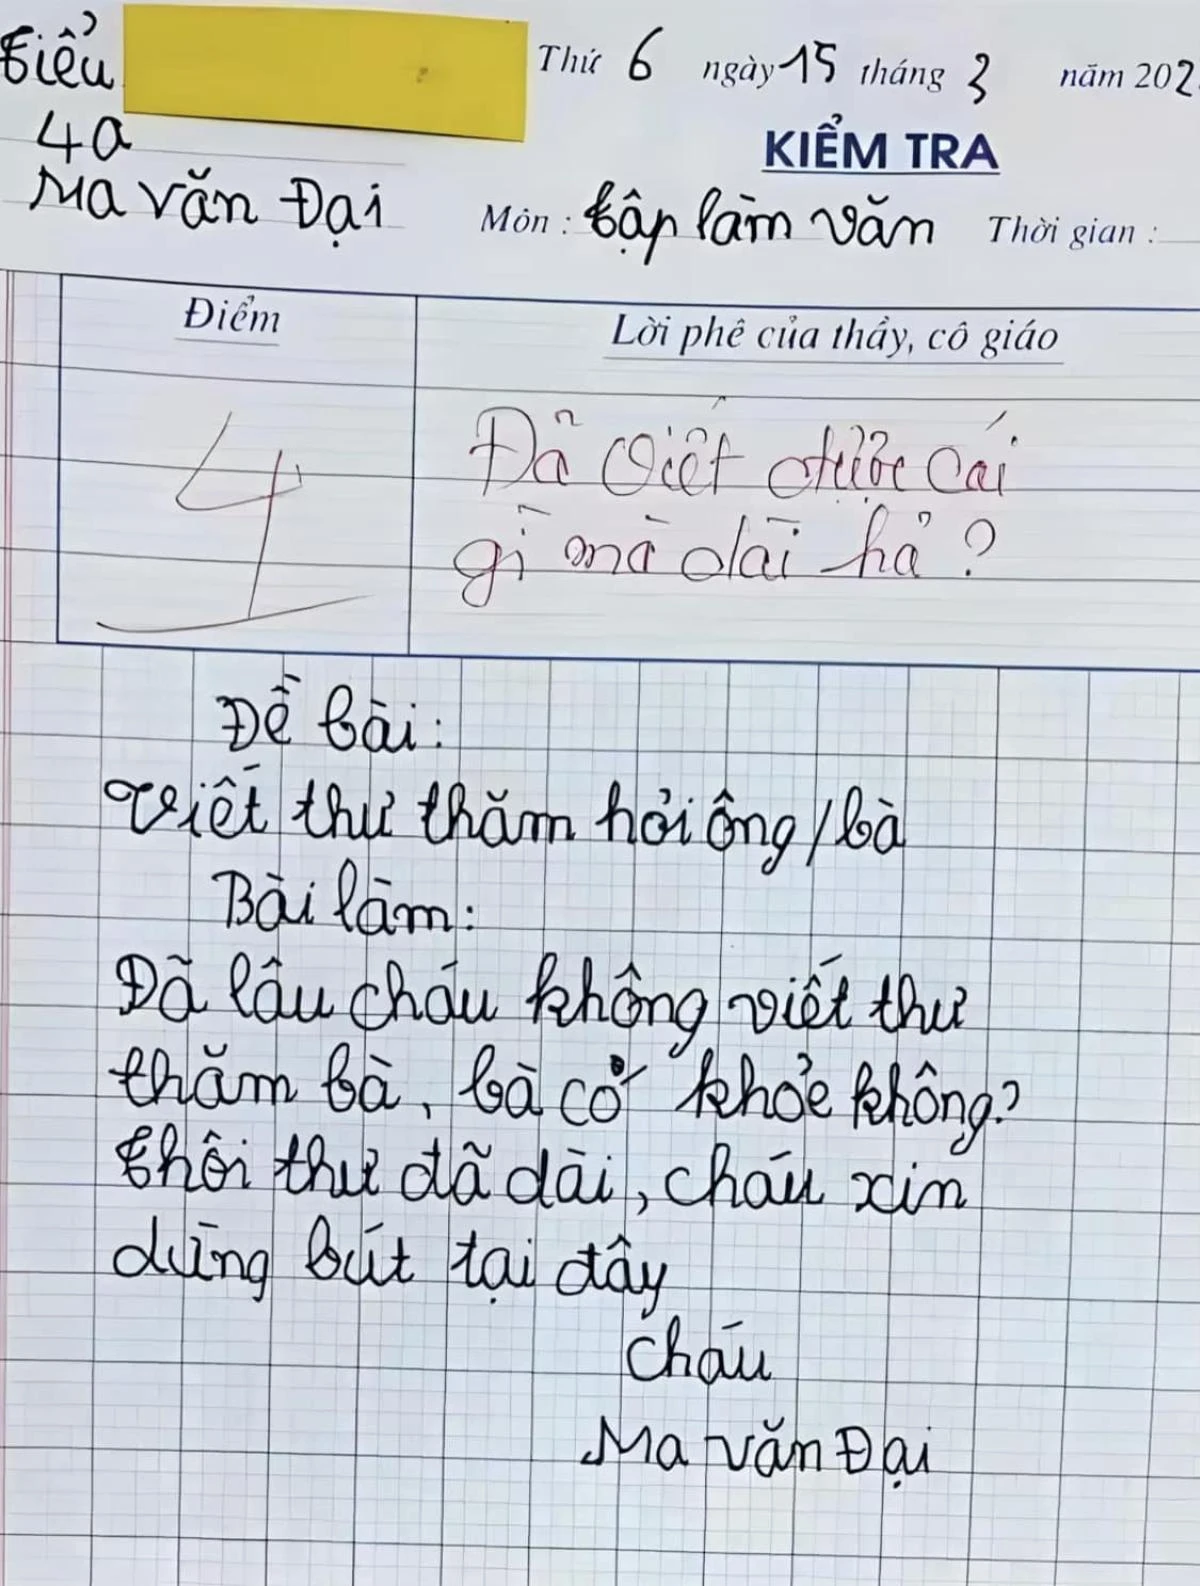 Tiểu
Thứ 6 ngày 15 tháng 3 năm 202
4a
KIỂM TRA
Ma Văn Đại
Môn : Tập làm văn Thời gian :
Điểm
Lời phê của thầy, cô giáo
4
Đã viết được cái
gì mà dài hả ?
Đề bài:
Viết thư thăm hỏi ông/bà
Bài làm:
Đã lâu cháu không viết thư
thăm bà, bà có khỏe không?
Thôi thư đã dài, cháu xin
dừng bút tại đây
Cháu
Ma Văn Đại